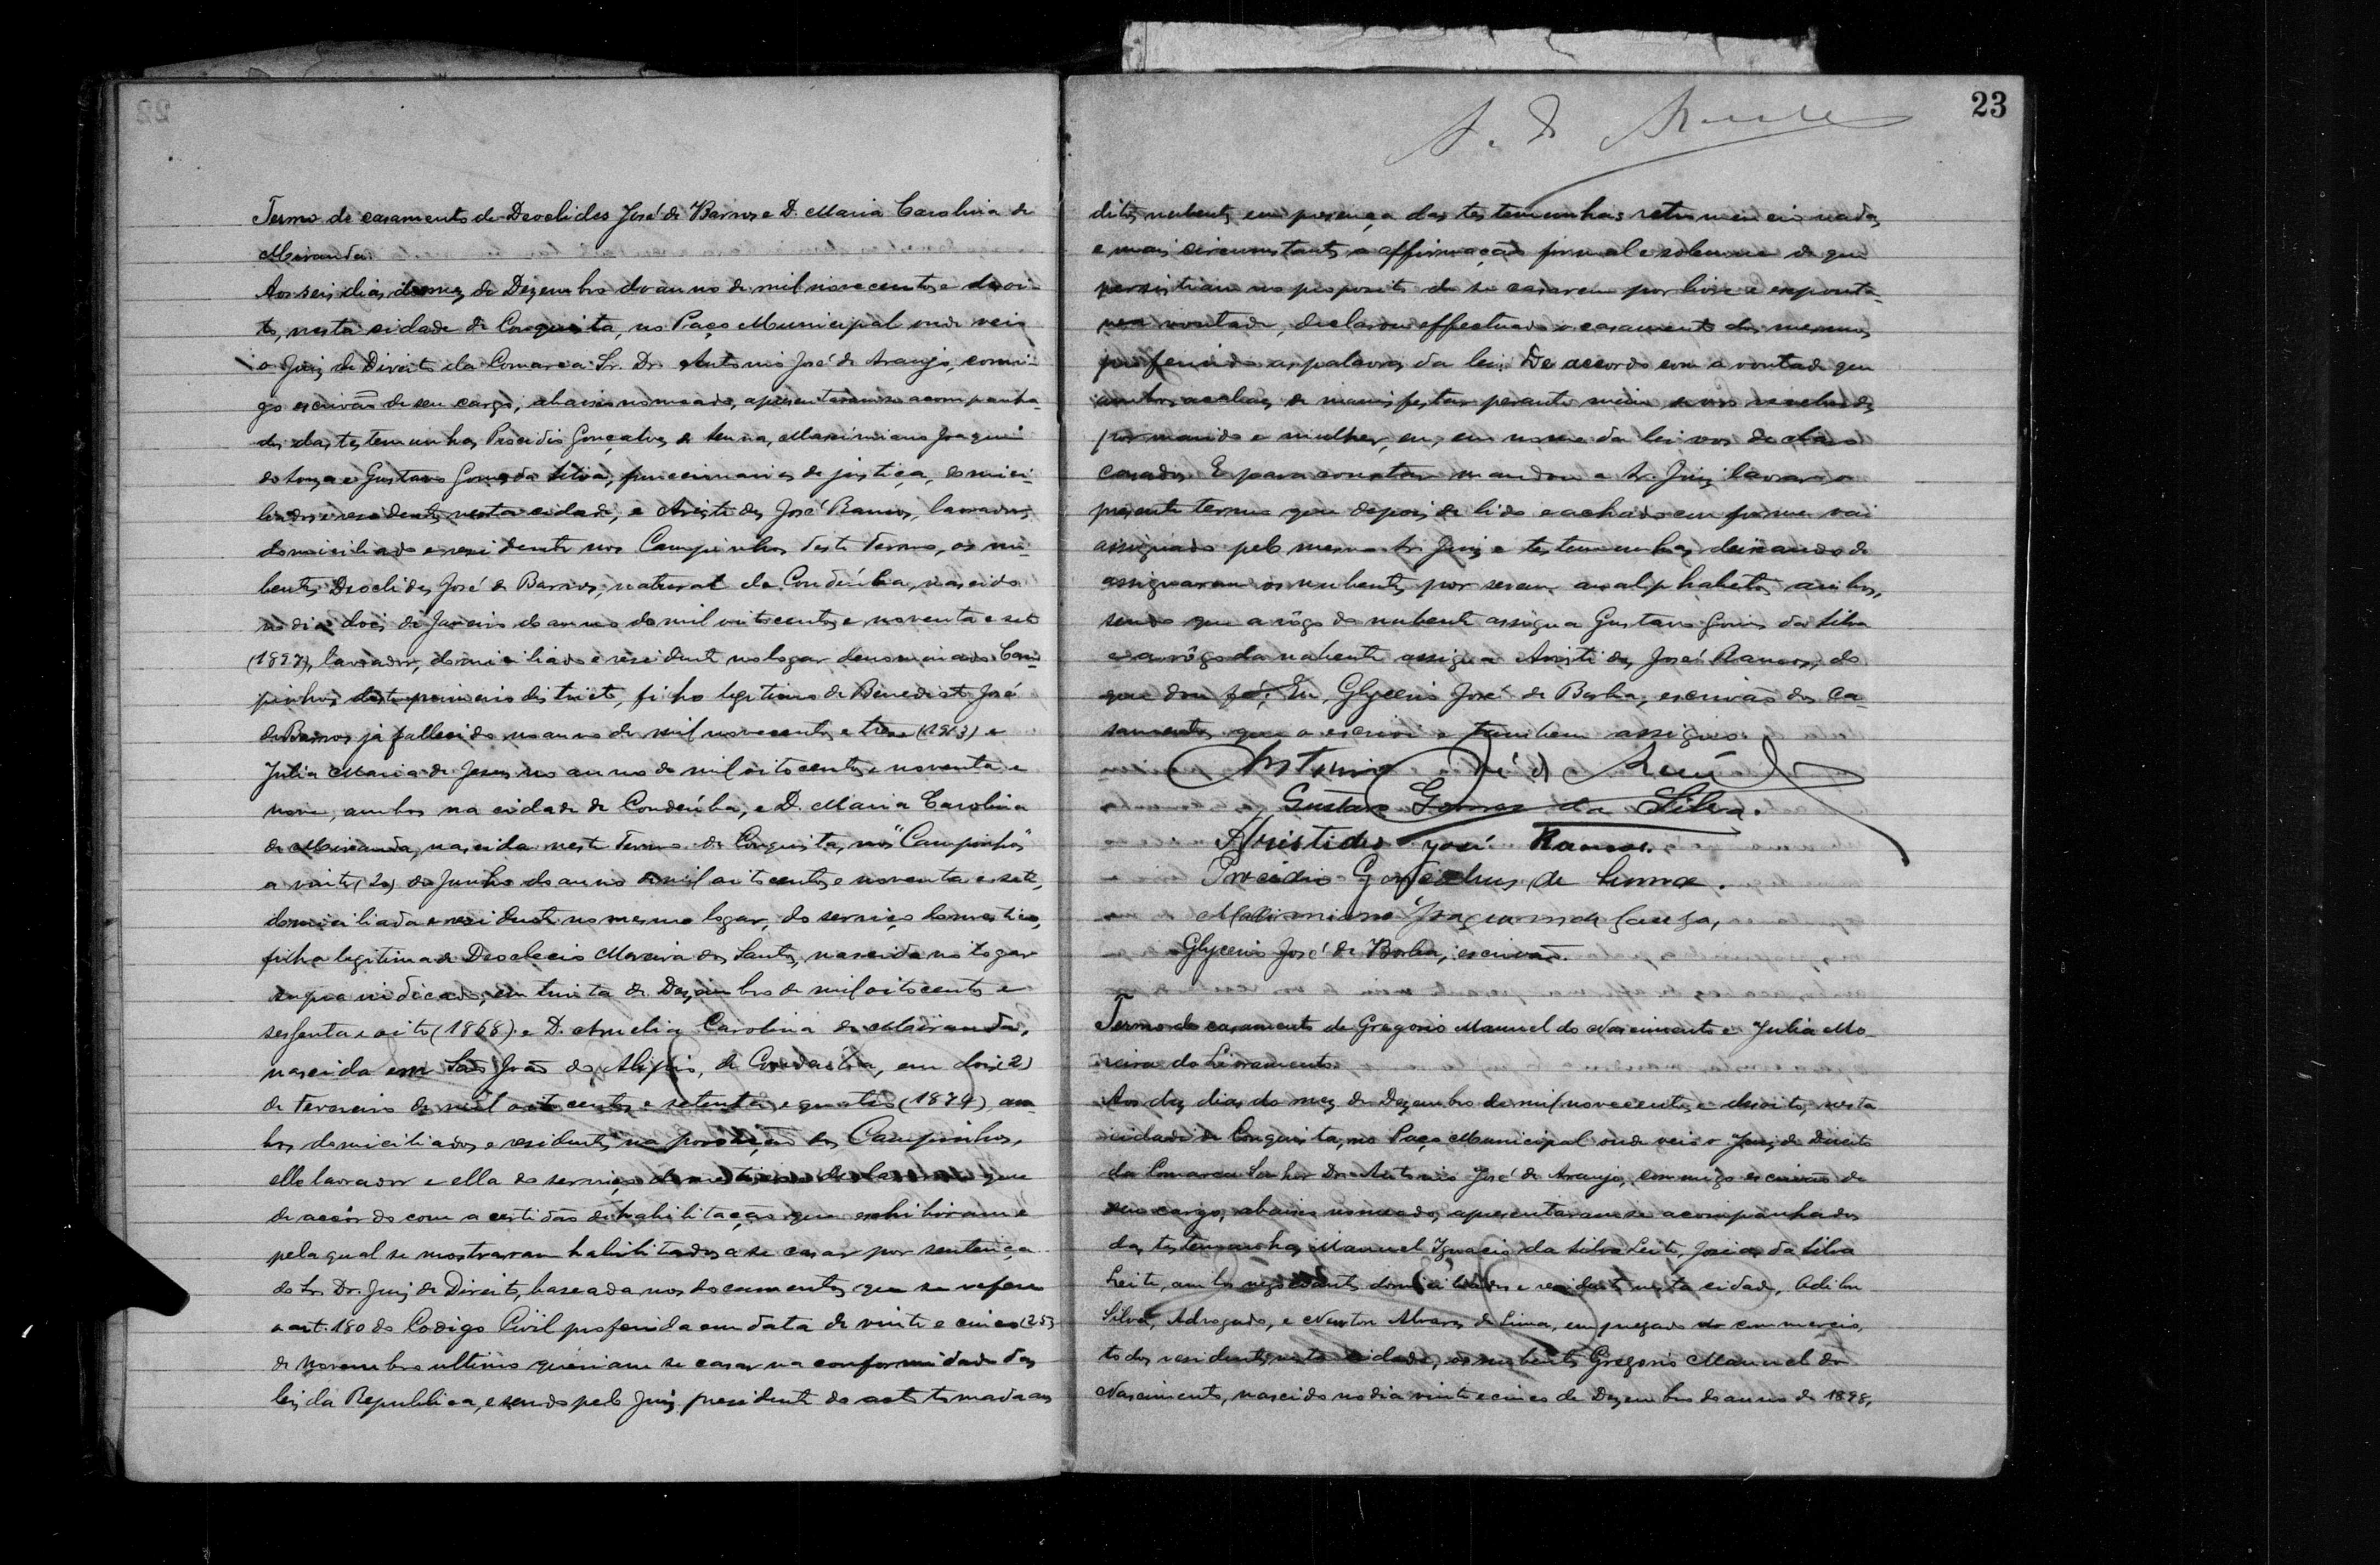 Termo de casamento de Deoclides José de Barros e D. Maria Carolina de
Miranda.
Aos seis dias do mez de Dezembro do anno de mil novecentos e dezoi-
to, nesta cidade de Conquista, no Paço Municipal onde veio
o Juiz de Direito da Comarca Sr. Dr. Antonio José de Araujo, comi-
go escrivão de seu cargo, abaixo nomeado, apresentaram-se acompanha-
dos das testemunhas, Procidio Gonçalves de Senna, Maximiano Joaquim
de Souza e Gustavo Gomes da Silva, funccionarios de justiça, domici-
liados e residentes nesta cidade, e Aristides José Ramos, lavrador,
domiciliado e residente nos Campinhos deste Termo, os nu-
bentes Deoclides José de Barros, natural de Condeúba, nascido
no dia dois de Janeiro do anno de mil oitocentos e noventa e sete
(1897), lavrador, domiciliado e residente no logar denominado Cam-
pinhos deste primeiro districto, filho legitimo de Benedicto José
de Barros já fallecido no anno de mil novecentos e treze (1913) e
Julia Maria de Jesus no anno de mil oitocentos e noventa e
nove, ambos na cidade de Condeúba, e D. Maria Carolina
de Miranda, nascida neste Termo de Conquista, nos "Campinhos"
a vinte (20) de Junho do anno de mil oitocentos e noventa e sete,
domiciliada e residente no mesmo logar, do serviço domestico,
filha legitima de Deoclecio Moreira dos Santos, nascido no logar
supra indicado, em trinta de Dezembro de mil oitocentos e
sessenta e oito (1868) e D. Amelia Carolina de Miranda,
nascida em São João do Alipio, de Condeúba, em dois (2)
de Fevereiro de mil oitocentos e setenta e quatro (1874), am-
bos domiciliados e residentes na povoação dos Campinhos,
elle lavrador e ella do serviço domestico que
de accôrdo com a certidão de habilitação que exhibiram e
pela qual se mostraram habilitados a se casar por sentença
do Sr. Dr. Juiz de Direito, baseada nos documentos que se refere
o art. 180 do Codigo Civil proferida em data de vinte e cinco (25)
de Novembro ultimo queriam se casar na conformidade das
leis da Republica, e sendo pelo Juiz presidente do acto tomada aos
23
ditos nubentes em presença das testemunhas retro mencionadas,
e mais circumstantes a affirmação formal e solemne de que
persistiam no proposito de se casarem por livre e esponta-
nea vontade, declarou effectuado o casamento dos mesmos,
proferindo as palavras da lei: De accordo com a vontade que
ambos acabaes de manifestar perante mim de vos receberdes
por marido e mulher, eu, em nome da lei vos declaro
casados. E para constar mandou o Sr. Juiz lavrar o
presente termo que depois de lido e achado conforme vai
assignado pelo mesmo Sr. Juiz e testemunhas, deixando de
assignarem os nubentes por serem analphabetos ambos,
sendo que a rôgo do nubente assigna Gustavo Gomes da Silva
e a rôgo da nubente assigna Aristides José Ramos, do
que dou fé. Eu, Glycerio José de Borba, escrivão dos ca-
samentos que o escrevi e tambem assigno.
Antonio José de Araujo
Gustavo Gomes da Silva.
Aristides José Ramos.
Procidio Gonçalves de Senna.
Maximiano Joaquim de Souza,
Glycerio José de Borba, escrivão.
Termo de casamento de Gregorio Manuel do Nascimento e Julia Mo-
reira do Livramento.
Aos dez dias do mez de Dezembro de mil novecentos e dezoito, nesta
cidade de Conquista, no Paço Municipal onde veio o Juiz de Direito
da Comarca Senhor Dr. Antonio José de Araujo, commigo escrivão de
seu cargo, abaixo nomeado, apresentaram-se acompanhados
das testemunhas Manuel Ignacio da Silva Leite, Josias da Silva
Leite, ambos negociantes domiciliados e residentes nesta cidade,
Silva, Advogado, e Newton Alvares de Lima, empregado do commercio,
todos residentes nesta cidade, os nubentes Gregorio Manuel do
Nascimento, nascido no dia vinte e cinco de Dezembro do anno de 1898,